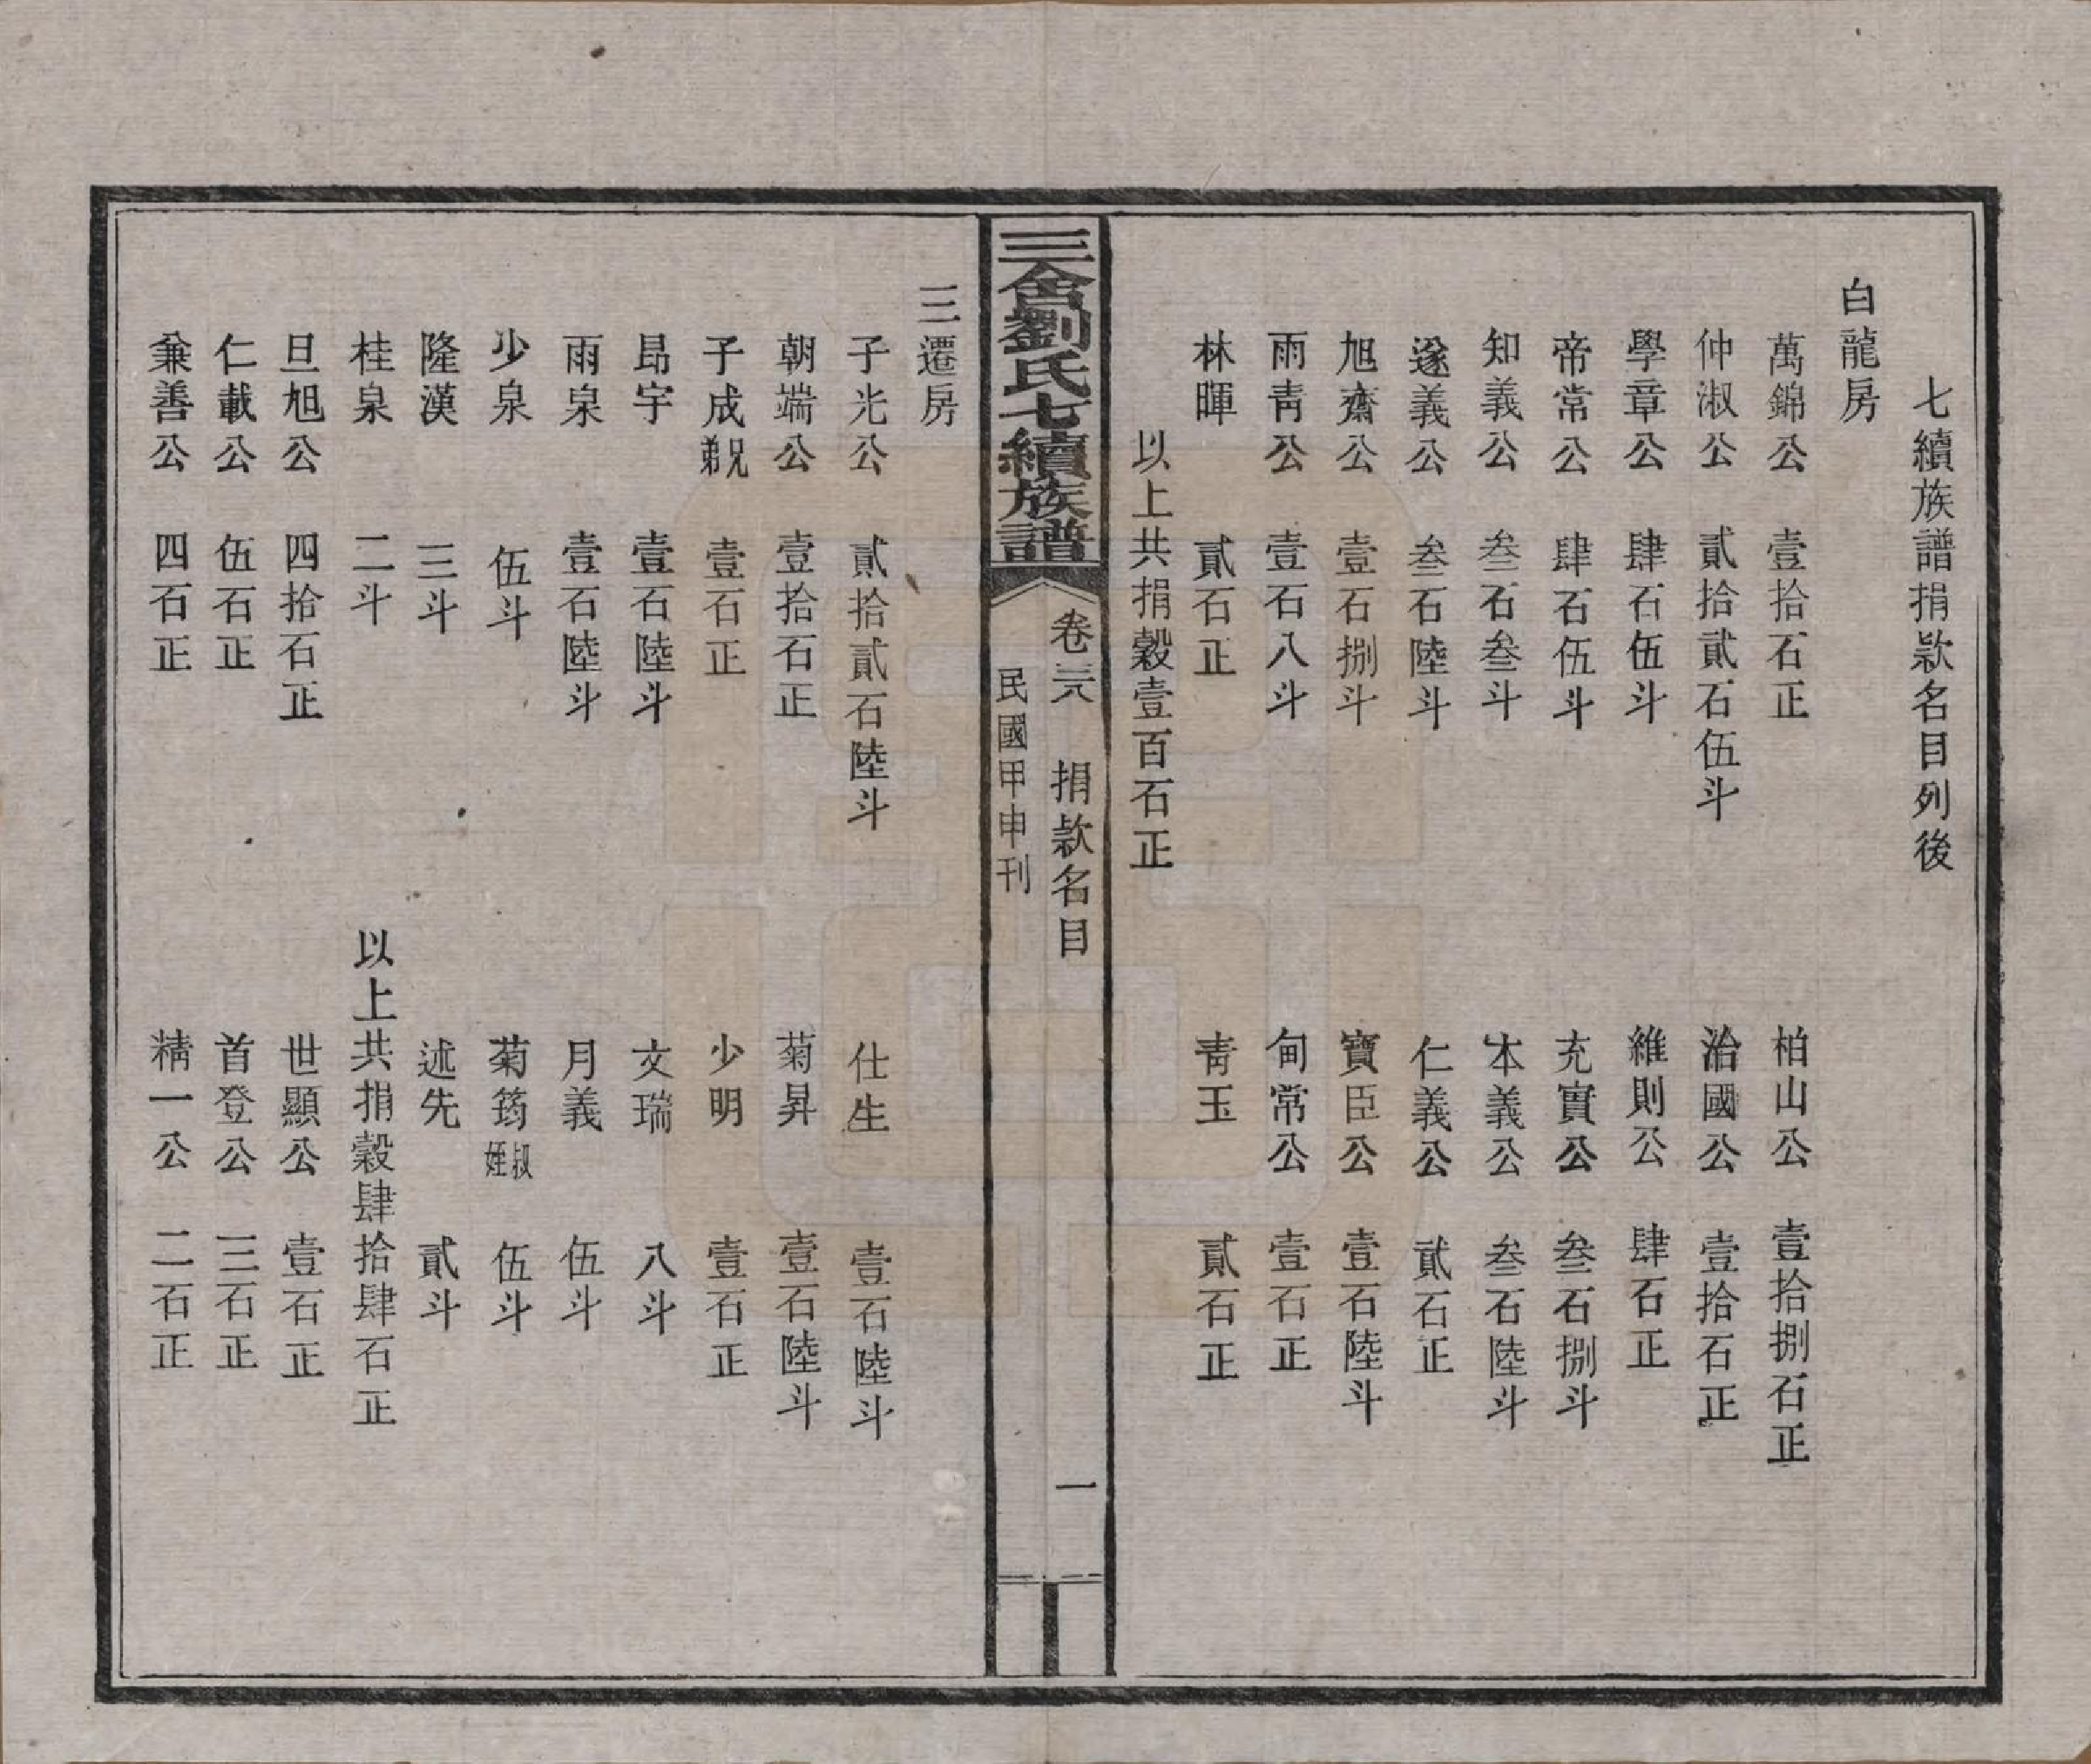 七續族譜捐款名目列後
白龍房
萬錦公　壹拾石正　柏山公　壹拾捌石正
仲淑公　貳拾貳石伍斗　治國公　壹拾石正
學章公　肆石伍斗　維則公　肆石正
帝常公　肆石伍斗　充實公　叁石捌斗
知義公　叁石叁斗　本義公　叁石陸斗
遂義公　叁石陸斗　仁義公　貳石正
旭齋公　壹石捌斗　寶臣公　壹石陸斗
雨青公　壹石八斗　甸常公　壹石正
林暉　貳石正　青玉　貳石正
以上共捐穀壹百石正
三舍劉氏七續族譜
卷三六　捐款名目　一
民國甲申刊
三遷房
子光公　貳拾貳石陸斗　仕生　壹石陸斗
朝端公　壹拾石正　菊昇　壹石陸斗
子成兄弟　壹石正　少明　壹石正
昂宇　壹石陸斗　文瑞　八斗
雨泉　壹石陸斗　月義　伍斗
少泉　伍斗　菊筠叔姪　伍斗
隆漢　三斗　述先　貳斗
桂泉　二斗　以上共捐穀肆拾肆石正
旦旭公　四拾石正　世顯公　壹石正
仁載公　伍石正　首登公　三石正
兼善公　四石正　精一公　二石正